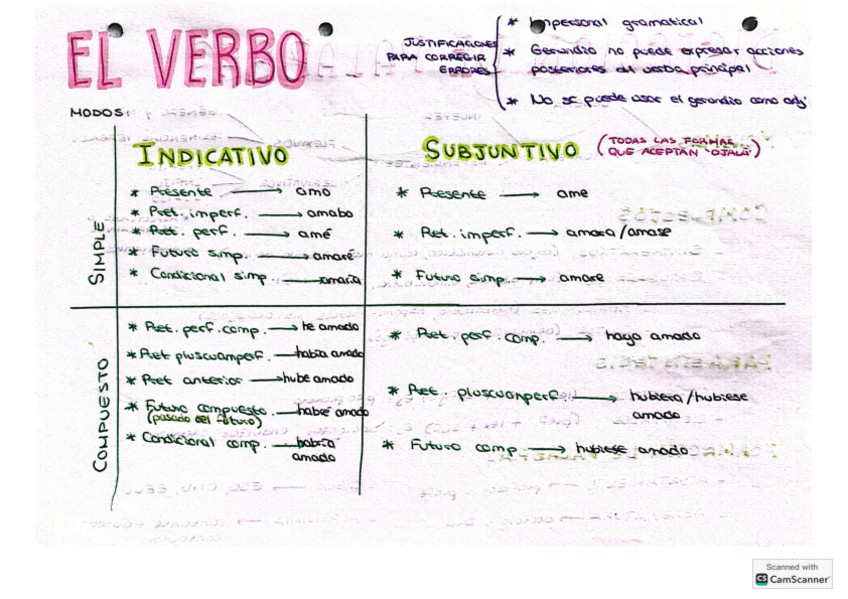 EL VERBO
JUSTIFICACIONES
PARA CORREGIR
ERRORES
* Impersonal gramatical
* Gerundio no puede expresar acciones
posteriores del verbo principal
* No se puede usar el gerundio como adj
MODOS:
INDICATIVO
SUBJUNTIVO
(TODAS LAS FORMAS
QUE ACEPTAN "OJALÁ")
SIMPLE
* Presente → amo
* Pret. imperf. → amaba
* Pret. perf. → amé
* Futuro simp. → amaré
* Condicional simp. → amaría
* Presente → ame
* Pret. imperf. → amara/amase
* Futuro simp. → amare
COMPUESTO
* Pret. perf. comp. → he amado
* Pret pluscuamperf. → había amado
* Pret anterior → hube amado
* Futuro compuesto → habré amado
(pasado del futuro)
* Condicional comp. → habría
amado
* Pret. perf. comp. → haya amado
* Pret. pluscuamperf → hubiera/hubiese
amado
* Futuro comp. → hubiese amado
Scanned with
CS CamScanner